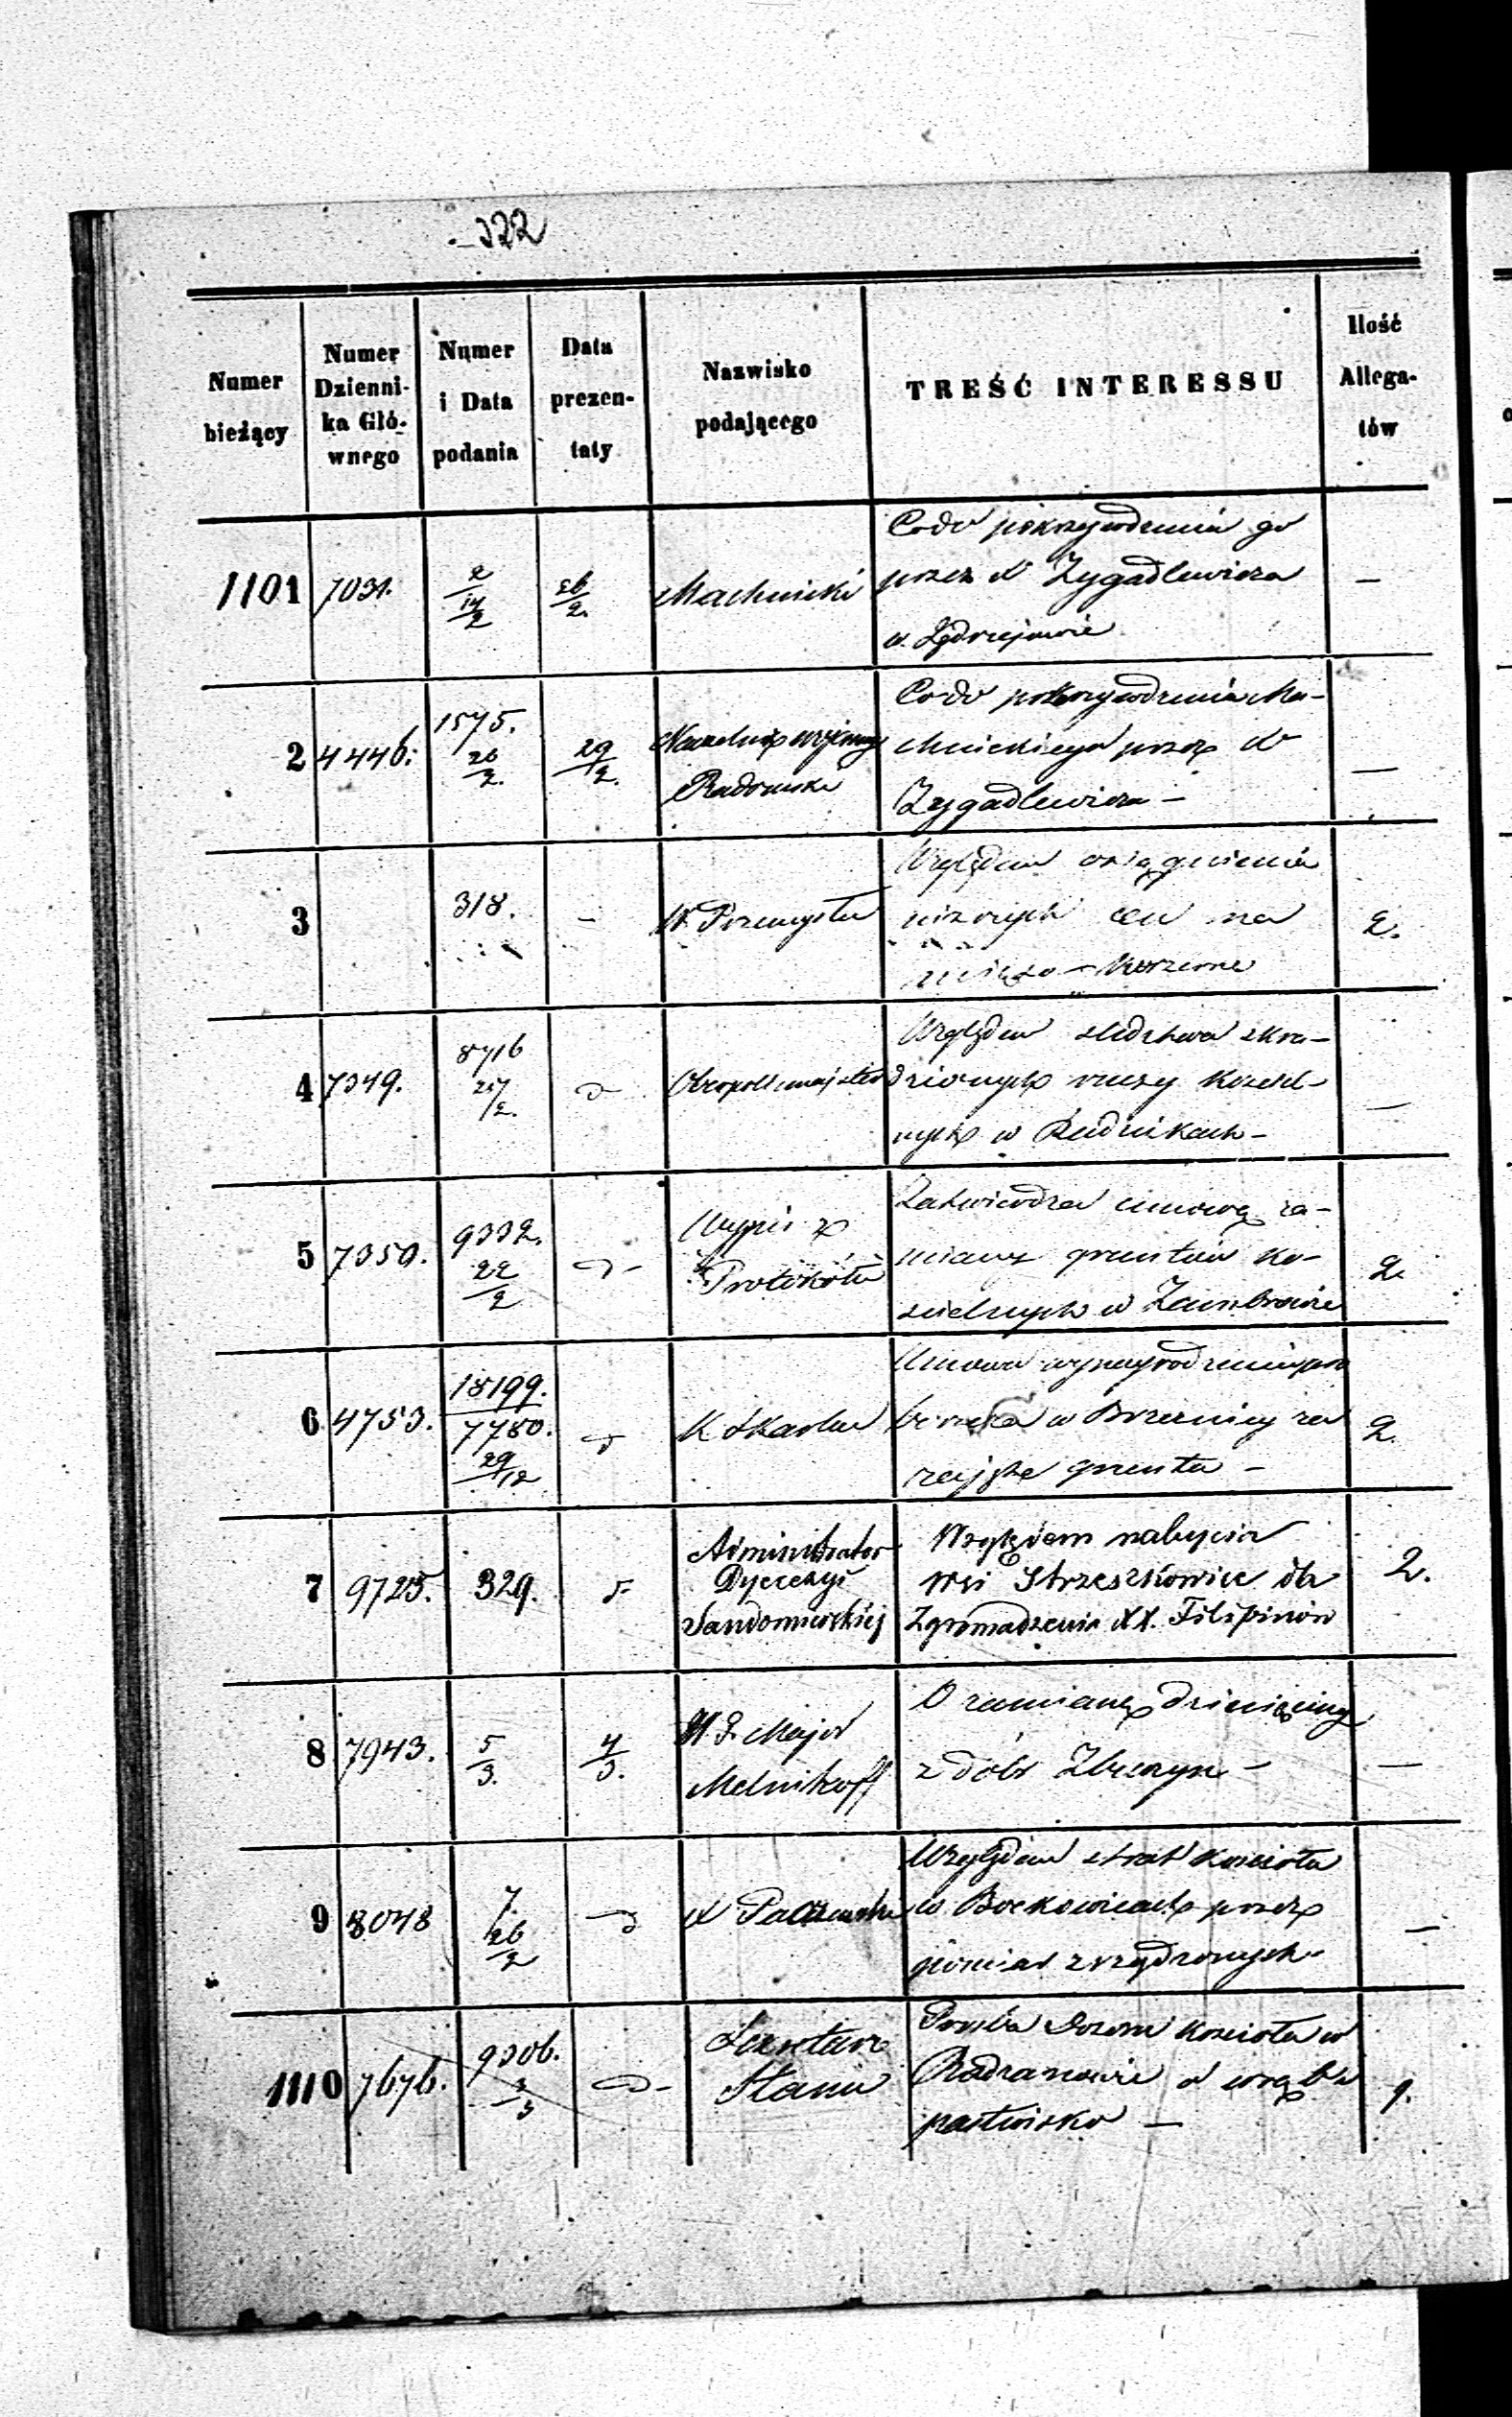 322
Numer bieżący
Numer Dzienni- ka Głó- wnego
Numer i Data podania
Data prezen- taty
Nazwisko podającego
TREŚĆ INTERESSU
Ilość Allega- tów
1101 7031. 2 14/2 26/2. Machnicki
Co do pokrzywdzenia go
przez X Zygadlewicza
w Jędrzejowie
—
2 4446. 1575. 26/2. 29/2. Naczelnik wojenny Radomski
Co do pokrzywdzenia Ma-
chnickiego przez X
Zygadlewicza —
—
3 318. — W. Przemysłu
Względem osiągnienia
niższych cen na
mięso — Koszerne
2.
4 7349. 8716 27/2. d Oberpolicmajster
Względem śledztwa skra-
dzionych rzeczy kościel-
nych w Rudnikach —
—
5 7350. 9332. 22/2 d- Wypis z Protokółu
Zatwierdza umowę za-
miany gruntów ko-
ścielnych w
2.
6 4753. 18199. 7780. 29/12 d K Skarbu
Umowa wynagrodzenia pro
boszcza w Brzeźnicy za
zajęte grunta —
2.
7 9725. 329. d Administrator Dyecezyi Sandomierskiej
Względem nabycia
wsi Strzeszkowice dla
Zgromadzenia XX. Filipinów
2.
8 7943. 5/3. 4/3. Major Melnikoff
O zamianę dziesięciny
z dóbr Zbrczyn —
—
9 8048 7. 26/2 d X
Względem strat kościoła
w Boćkowicach przez
pomiar zrządzonych —
—
1110 7676. 9306. 3/3 d- Sekretarz Stanu
Prośba Dozoru kościoła w
Radzanowie o wrąb i
pastwisko —
1.